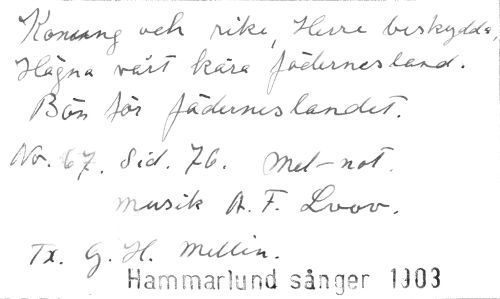 Konung och rike, Herre beskydda,
Hägna vårt kära fädernesland.
Bön för fäderneslandet.
No. 67. Sid. 76. Mel-not.
musik A. F. Lvov.
Tx. G. H. Mellin.
Hammarlund sånger 1903